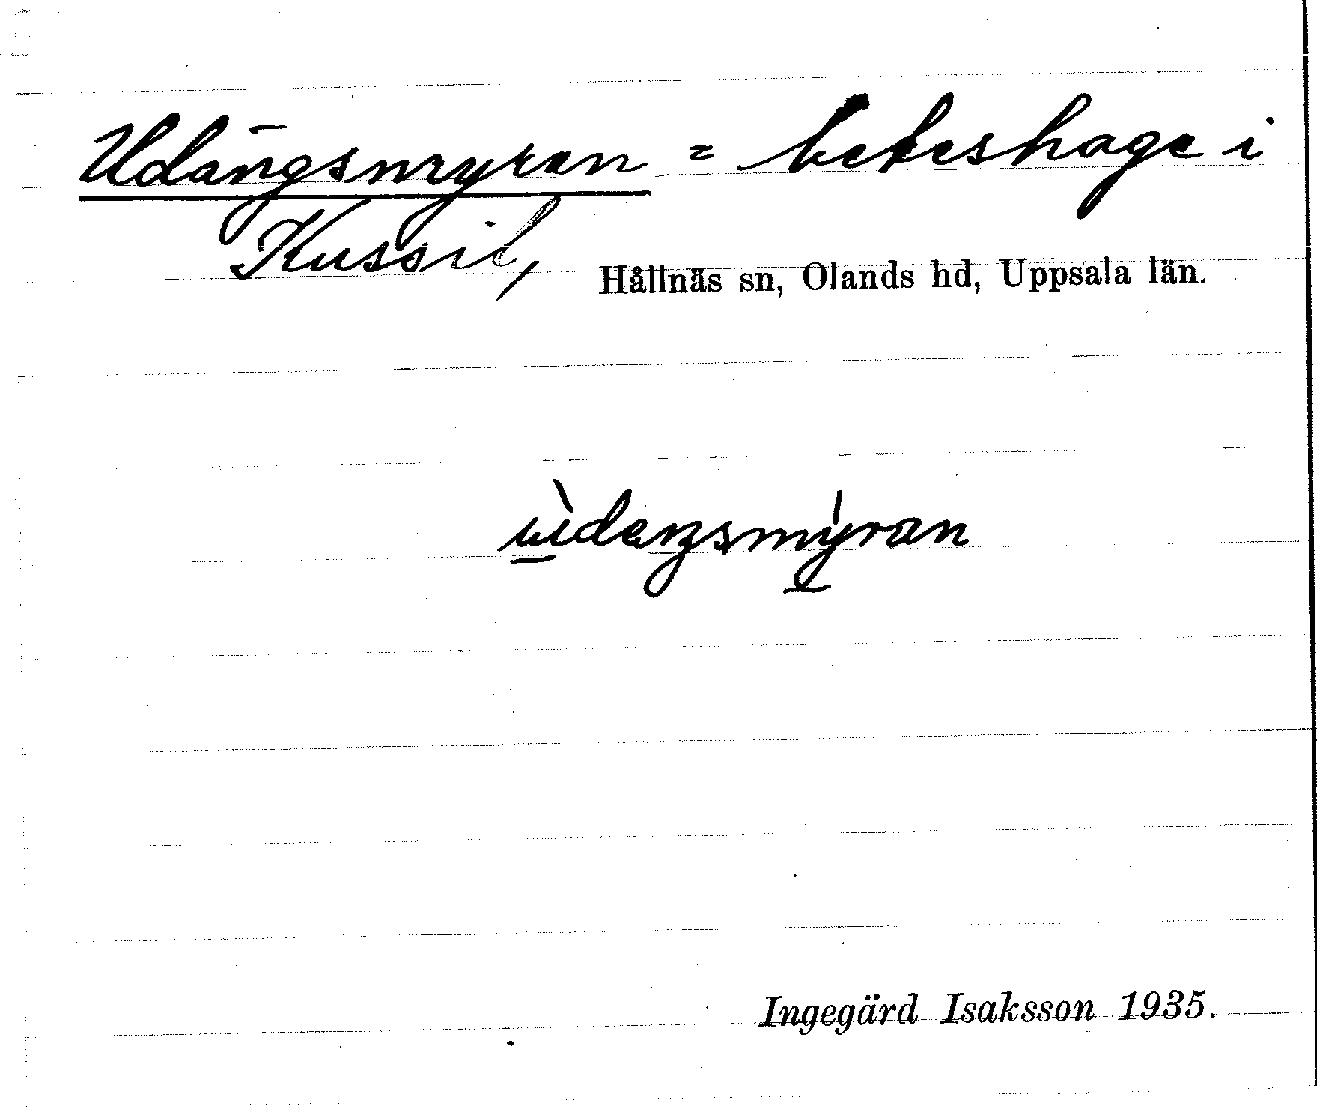 Udängsmyran = beteshage i
Kussil, Hållnäs sn, Olands hd, Uppsala län.
ùdeŋsmýran
Ingegärd Isaksson 1935.